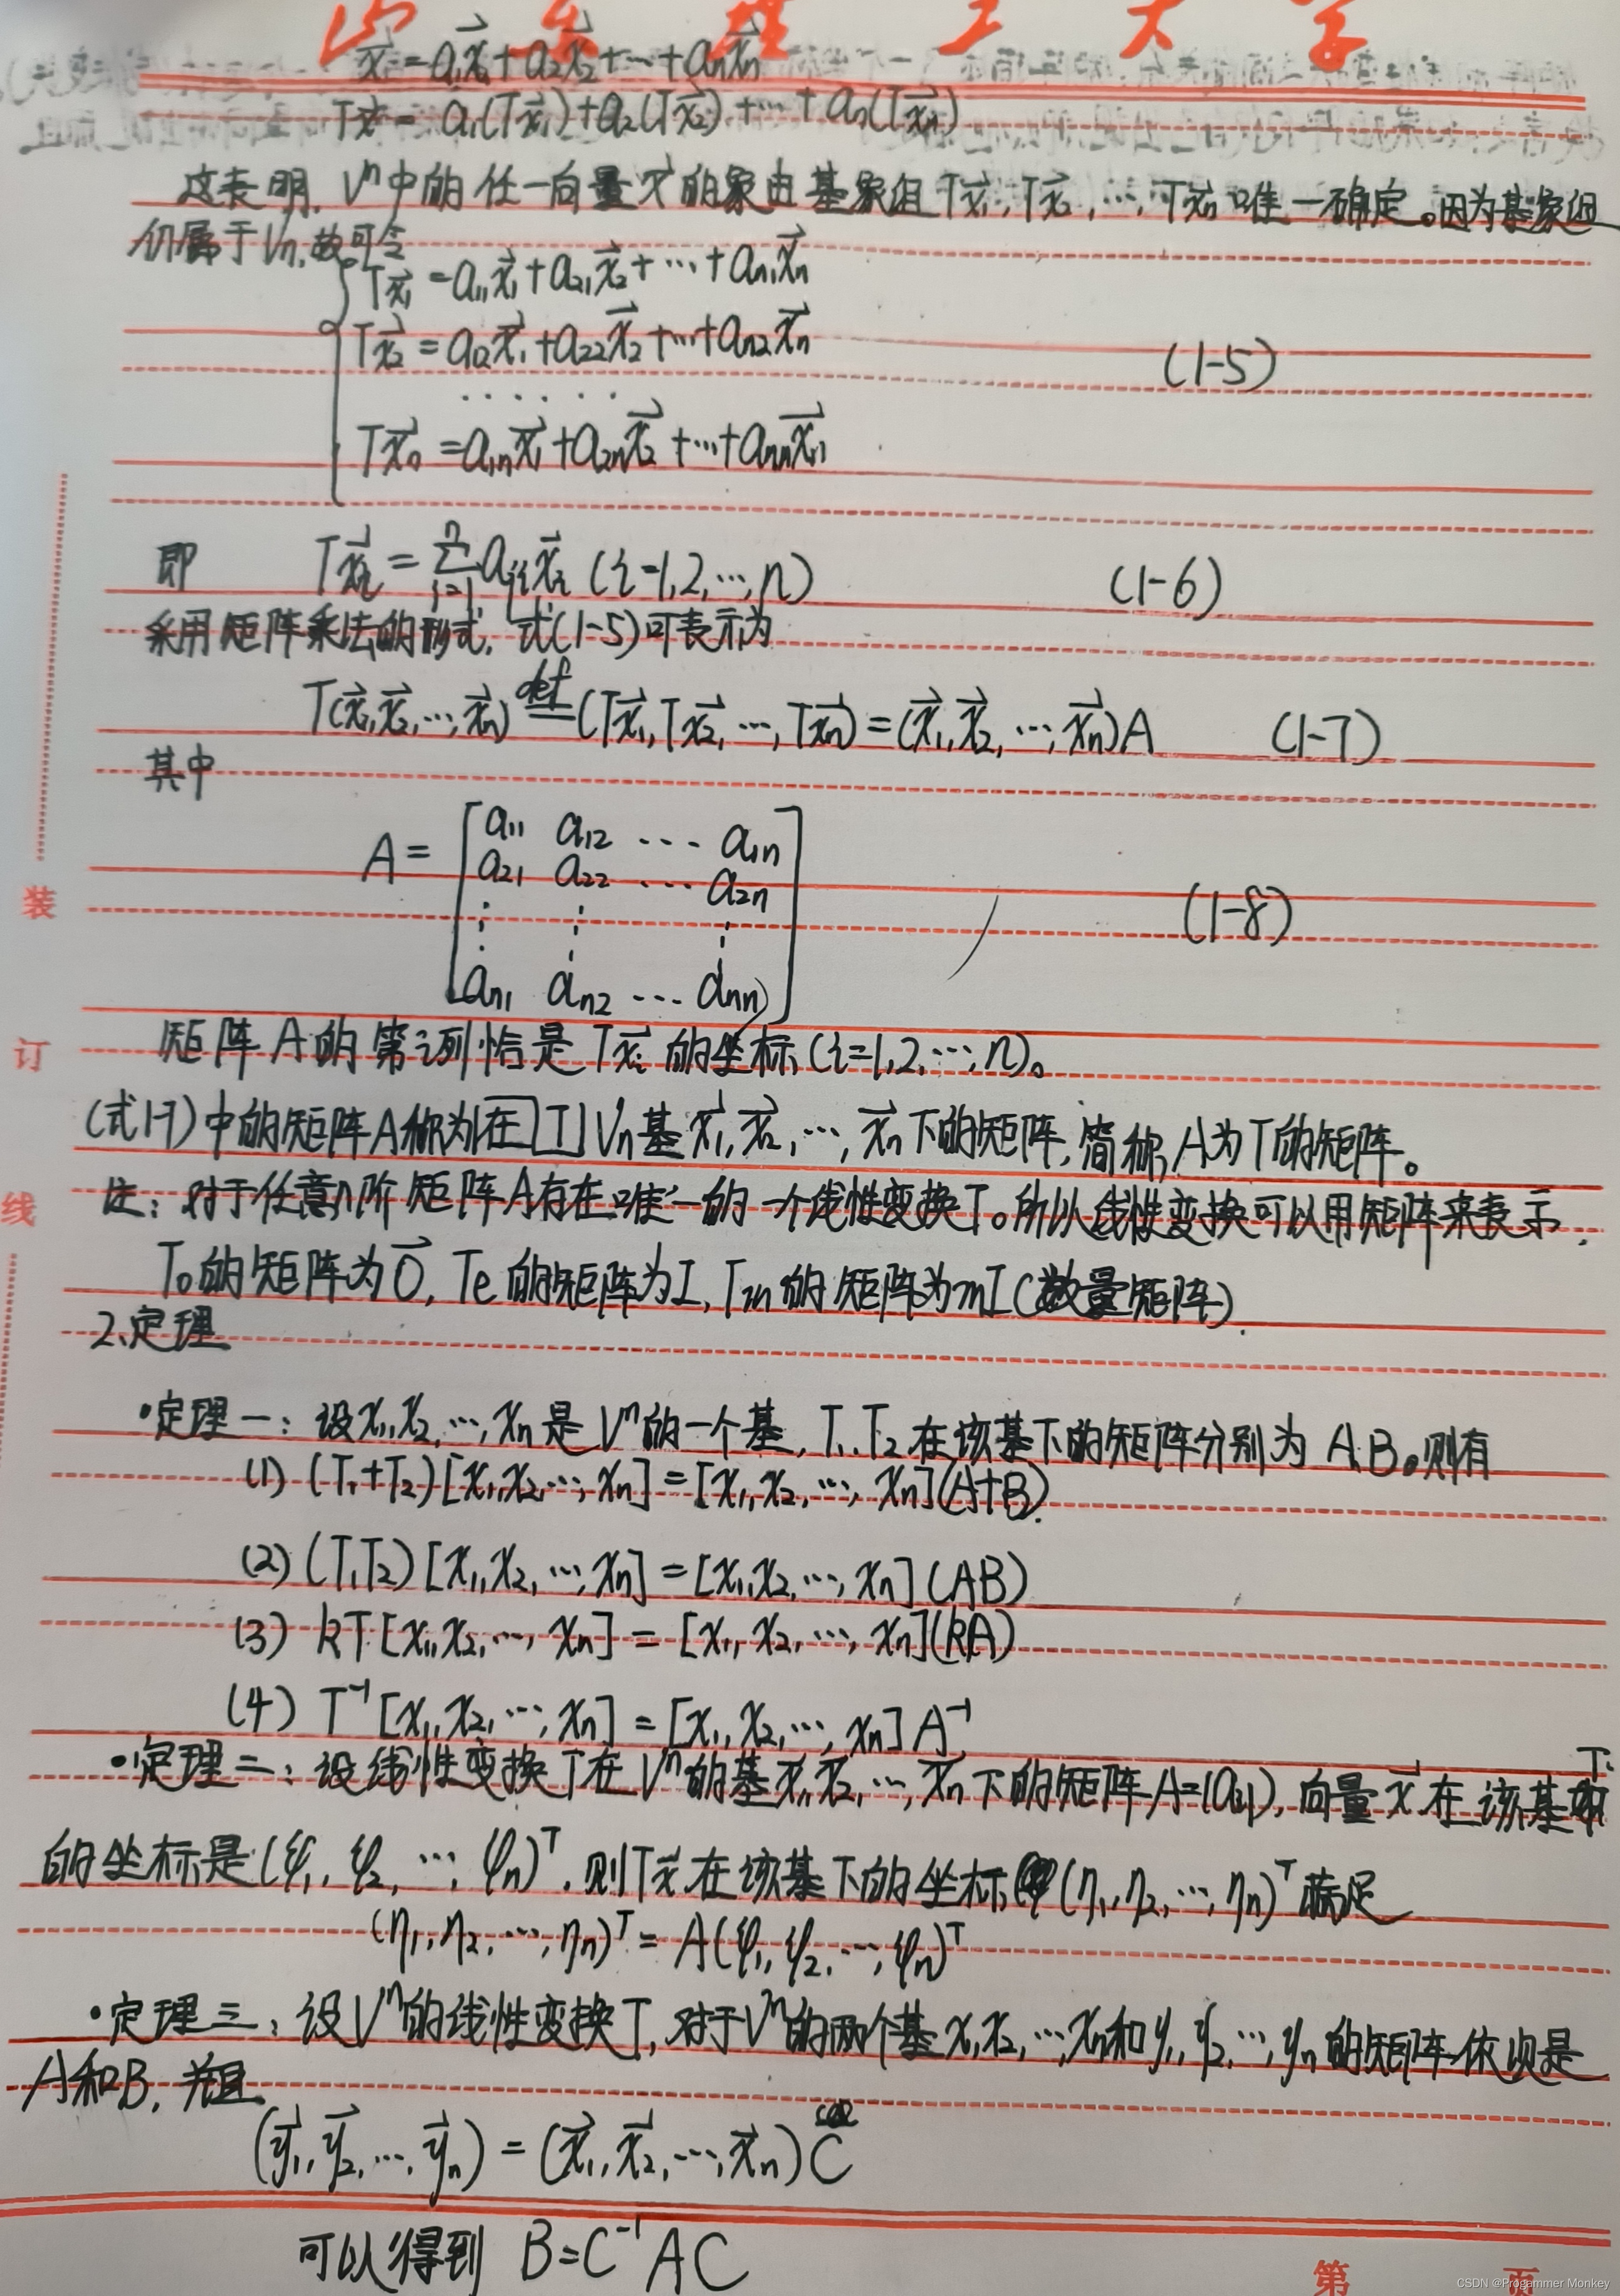 山东理工大学
x⃗ = a₁x⃗₁ + a₂x⃗₂ + ⋯ + aₙx⃗ₙ
Tx⃗ = a₁(Tx⃗₁) + a₂(Tx⃗₂) + ⋯ + aₙ(Tx⃗ₙ)
这表明, Vⁿ中的任一向量x⃗的象由基象组Tx⃗₁, Tx⃗₂, ⋯, Tx⃗ₙ唯一确定。因为基象组
仍属于Vn, 故可令
Tx⃗₁ = a₁₁x⃗₁ + a₂₁x⃗₂ + ⋯ + aₙ₁x⃗ₙ
Tx⃗₂ = a₁₂x⃗₁ + a₂₂x⃗₂ + ⋯ + aₙ₂x⃗ₙ (1-5)
⋯⋯
Tx⃗ₙ = a₁ₙx⃗₁ + a₂ₙx⃗₂ + ⋯ + aₙₙx⃗ₙ
即 Tx⃗ᵢ = Σⁿⱼ₌₁ aⱼᵢx⃗ᵢ (i=1,2,⋯,n) (1-6)
采用矩阵乘法的形式, 式(1-5)可表示为
T(x⃗₁, x⃗₂, ⋯, x⃗ₙ) def= (Tx⃗₁, Tx⃗₂, ⋯, Tx⃗ₙ) = (x⃗₁, x⃗₂, ⋯, x⃗ₙ)A (1-7)
其中
a₁₁ a₁₂ ⋯ a₁ₙ
A = a₂₁ a₂₂ ⋯ a₂ₙ
⋮ ⋮ ⋮ (1-8)
aₙ₁ aₙ₂ ⋯ aₙₙ
装
订
线
矩阵A的第i列恰是Tx⃗ᵢ的坐标(i=1,2,⋯,n)。
(式1-7)中的矩阵A称为在T Vn基x⃗₁, x⃗₂, ⋯, x⃗ₙ下的矩阵, 简称A为T的矩阵。
注: 对于任意n阶矩阵A存在唯一的一个线性变换T。所以线性变换可以用矩阵来表示.
T₀的矩阵为O⃗, Te的矩阵为I, Tm的矩阵为mI(数量矩阵).
2.定理
•定理一: 设x₁,x₂,⋯,xₙ是Vⁿ的一个基, T₁.T₂在该基下的矩阵分别为A.B。则有
(1) (T₁+T₂)[x₁,x₂,⋯,xₙ] = [x₁,x₂,⋯,xₙ](A+B).
(2) (T₁T₂)[x₁,x₂,⋯,xₙ] = [x₁,x₂,⋯,xₙ](AB)
(3) kT[x₁,x₂,⋯,xₙ] = [x₁,x₂,⋯,xₙ](kA)
(4) T⁻¹[x₁,x₂,⋯,xₙ] = [x₁,x₂,⋯,xₙ]A⁻¹
•定理二: 设线性变换T在Vⁿ的基x⃗₁,x⃗₂,⋯,x⃗ₙ下的矩阵A=(aᵢⱼ), 向量x⃗在该基下
的坐标是(ψ₁, ψ₂, ⋯, ψₙ)ᵀ, 则Tx⃗在该基下的坐标(η₁, η₂, ⋯, ηₙ)ᵀ满足
(η₁, η₂, ⋯, ηₙ)ᵀ = A(ψ₁, ψ₂, ⋯, ψₙ)ᵀ
•定理三: 设Vⁿ的线性变换T, 对于Vⁿ的两个基x₁,x₂,⋯,xₙ和y₁,y₂,⋯,yₙ的矩阵依次是
A和B, 并且
(y⃗₁, y⃗₂, ⋯, y⃗ₙ) = (x⃗₁, x⃗₂, ⋯, x⃗ₙ)C
可以得到 B=C⁻¹AC
第 页
CSDN @Progammer Monkey